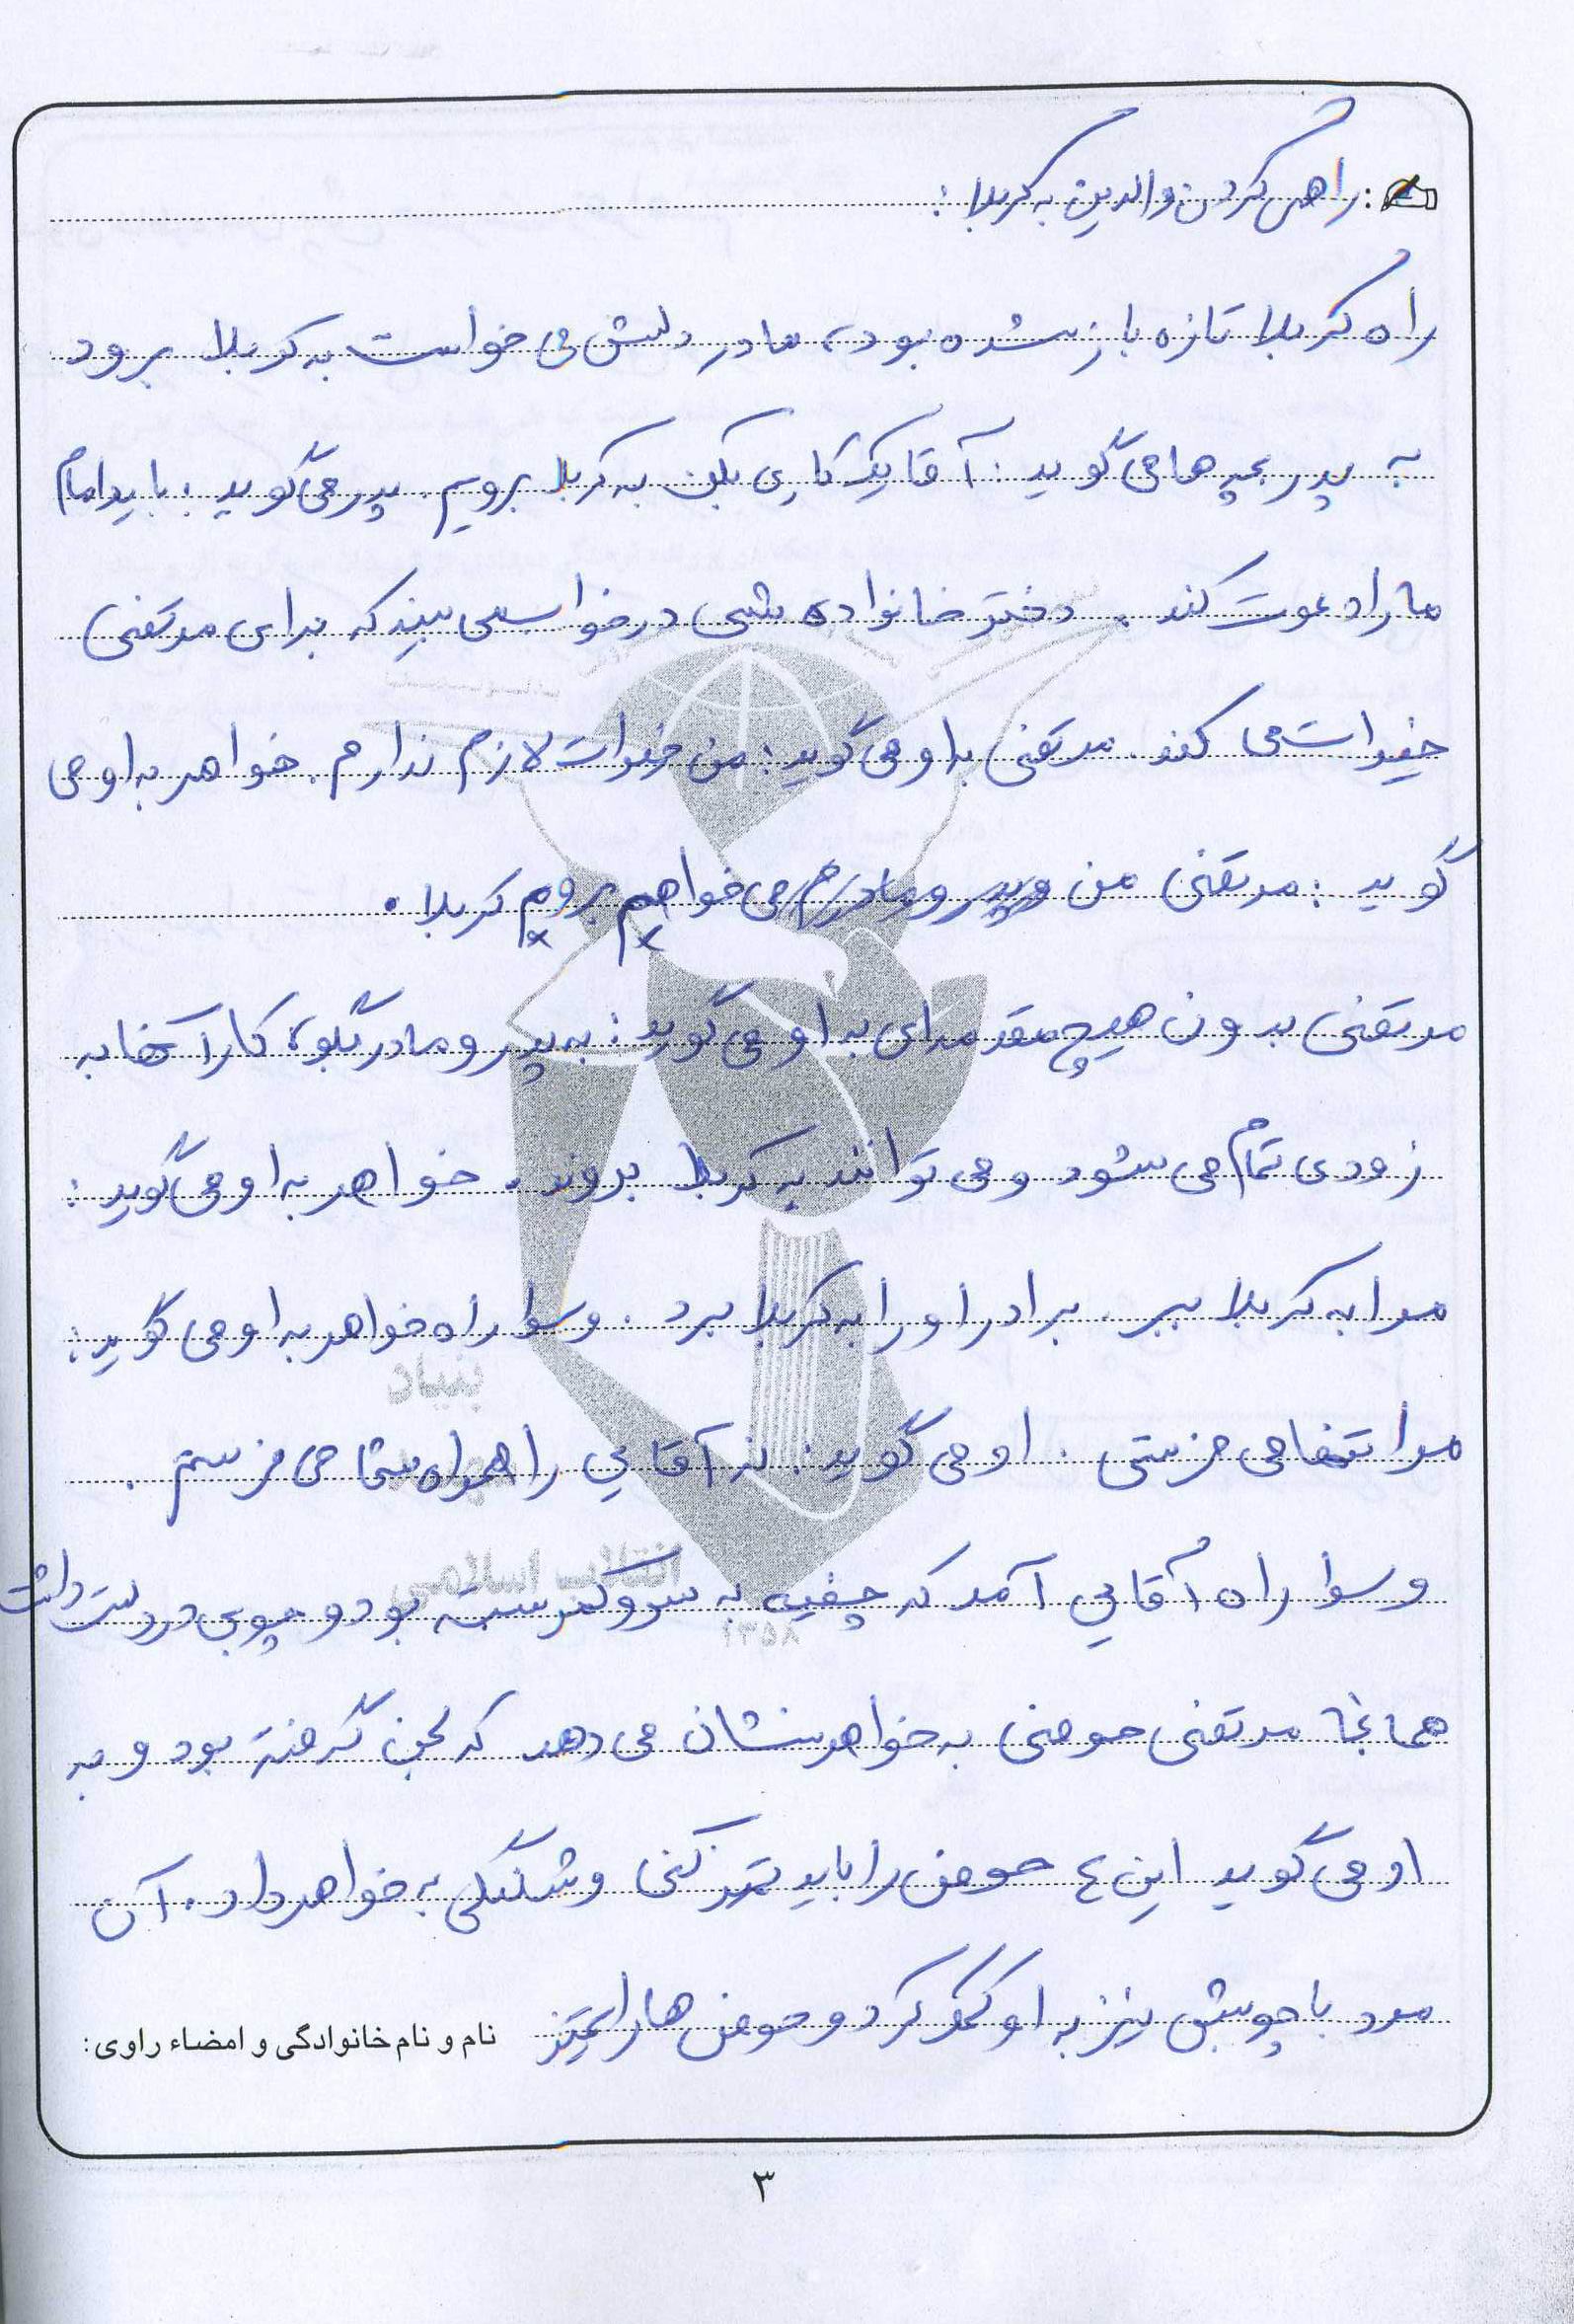 راهی کردن والدین به کربلا:
راه کربلا تازه باز شده بود، مادر دلش می خواست به کربلا برود
به پدر بچه ها می گوید: آقا یک کاری بکن به کربلا برویم. پدر می گوید: باید امام
ما را دعوت کند. دختر خانواده شبی در خواب می بیند که برای مرتضی
خیرات می کند. مرتضی با او می گوید: من خیرات لازم ندارم. خواهر به او می
گوید: مرتضی من و پدر و مادرم می خواهیم برویم کربلا.
مرتضی بدون هیچ مقدمه ای به او می گوید: به پدر و مادر بگو، کار آنها به
زودی تمام می شود و می توانند به کربلا بروند. خواهر به او می گوید:
مرا به کربلا ببر. برادر او را به کربلا برد. وسط راه خواهر به او می گوید:
مرا تنها می فرستی. او می گوید: نه آقایی را همراه شما می فرستم.
وسط راه آقایی آمد که چفیه به سر و کمر بسته بود و چوبی در دست داشت
همانجا مرتضی حوضی به خواهر نشان می دهد که لجن گرفته بود و به
او می گوید این ٤ حوض را باید تمیز کنی و شلنگی به خواهر داد. آن
مرد با چوبش نیز به او کمک کرد و حوض ها را تمیز
نام و نام خانوادگی و امضاء راوی:
۳
بنیاد
انقلاب اسلامی
۱۳۵۸